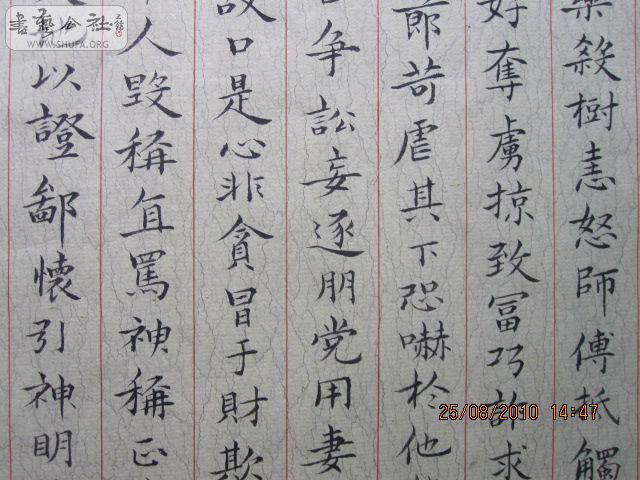 藥殺樹恚怒師傅抵觸
好奪虜掠致冨巧詐求
節苛虐其下恐嚇於他
争訟妄逐朋党用妻
口是心非貪冒于財欺
人毀稱直罵神稱正
以證鄙懷引神明
書藝公社
WWW.SHUFA.ORG
25/08/2010 14:47